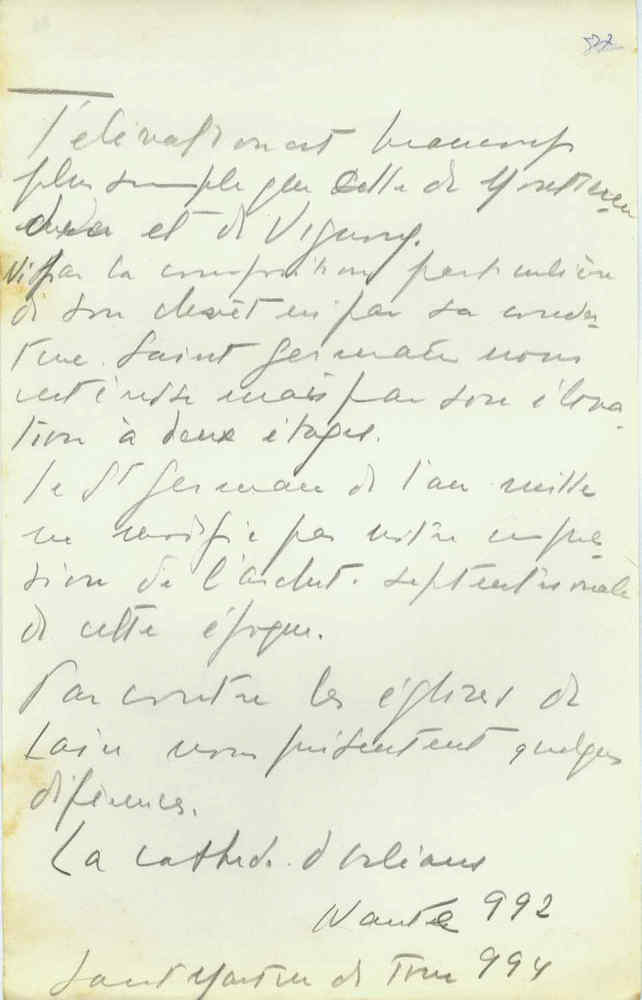 l'élévation est beaucoup
plus simple que celle de Montieren
et de Vignory.
Ni par la composition particulière
de son chevet ni par sa couver
ture. Saint Germain nous
intéresse mais par son éleva
tion à deux étages.
Le St Germain de l'an mille
ne modifie pas notre impres
sion de l'archit. septentrionale
de cette époque.
Par contre les églises de
Loire nous présentent quelques
diférences.
La cathed. d'Orléans
Nantes 992
Saint Martin de Tour 994